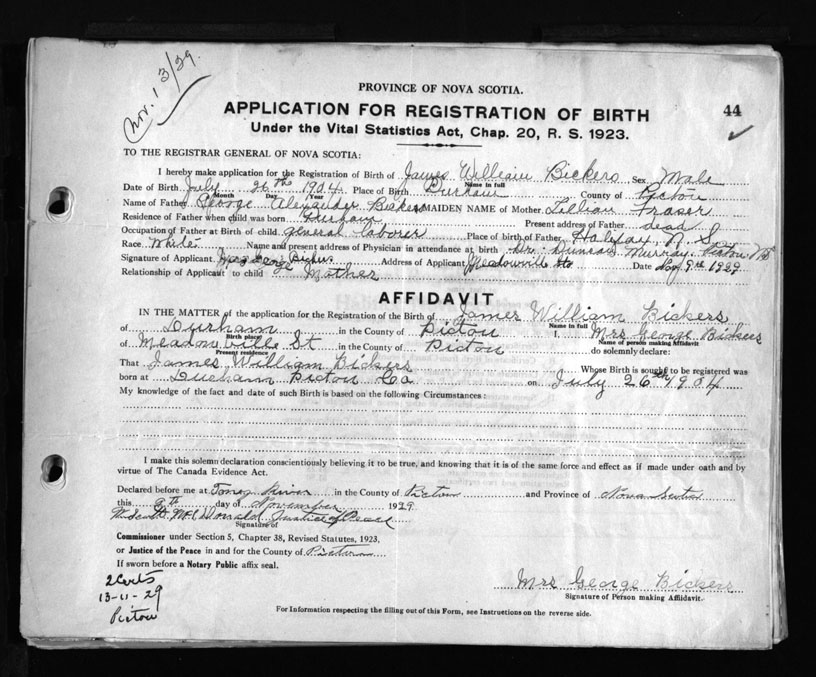 Nov. 13/29.
PROVINCE OF NOVA SCOTIA.
APPLICATION FOR REGISTRATION OF BIRTH 44
Under the Vital Statistics Act, Chap. 20, R. S. 1923.
TO THE REGISTRAR GENERAL OF NOVA SCOTIA:
I hereby make application for the Registration of Birth of James William Bickers Sex Male
Name in full
Date of Birth July 26th 1904 Place of Birth Durham County of Pictou
Month Day Year
Name of Father George Alexander Bickers MAIDEN NAME of Mother Lillian Fraser
Residence of Father when child was born Durham Present address of Father dead
Occupation of Father at Birth of child general laborer Place of birth of Father Halifax N S
Race White Name and present address of Physician in attendance at birth Dr. Duncan Murray Pictou NS
Signature of Applicant Mrs George Bickers Address of Applicant Meadowvill Sta Date Nov 9th 1929
Relationship of Applicant to child Mother
AFFIDAVIT
IN THE MATTER of the application for the Registration of the Birth of James William Bickers
Name in full
of Durham in the County of Pictou I, Mrs George Bickers
Birth place Name of person making Affidavit
of Meadow Ville St in the County of Pictou do solemnly declare:
Present residence
That James William Bickers Whose Birth is sought to be registered was
born at Durham Pictou Co on July 26th 1904
My knowledge of the fact and date of such Birth is based on the following Circumstances:
I make this solemn declaration conscientiously believing it to be true, and knowing that it is of the same force and effect as if made under oath and by
virtue of The Canada Evidence Act.
Declared before me at Toney River in the County of Pictou and Province of Nova Scotia
this 9th day of November 1929
McDonald Justice of Peace
Signature of
Commissioner under Section 5, Chapter 38, Revised Statutes, 1923,
or Justice of the Peace in and for the County of Pictou
If sworn before a Notary Public affix seal.
2 Certs
13-11-29
Pictou
Mrs George Bickers
Signature of Person making Affidavit.
For Information respecting the filling out of this Form, see Instructions on the reverse side.